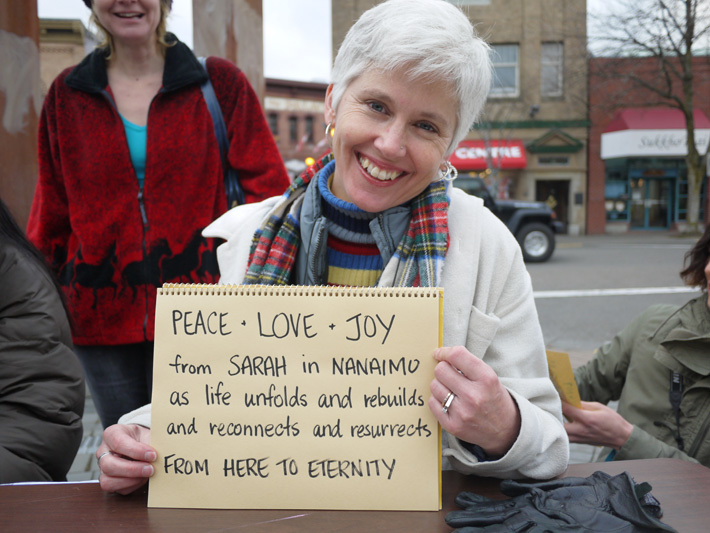 PEACE + LOVE + JOY
from SARAH in NANAIMO
as life unfolds and rebuilds
and reconnects and resurrects
FROM HERE TO ETERNITY
CENTRE